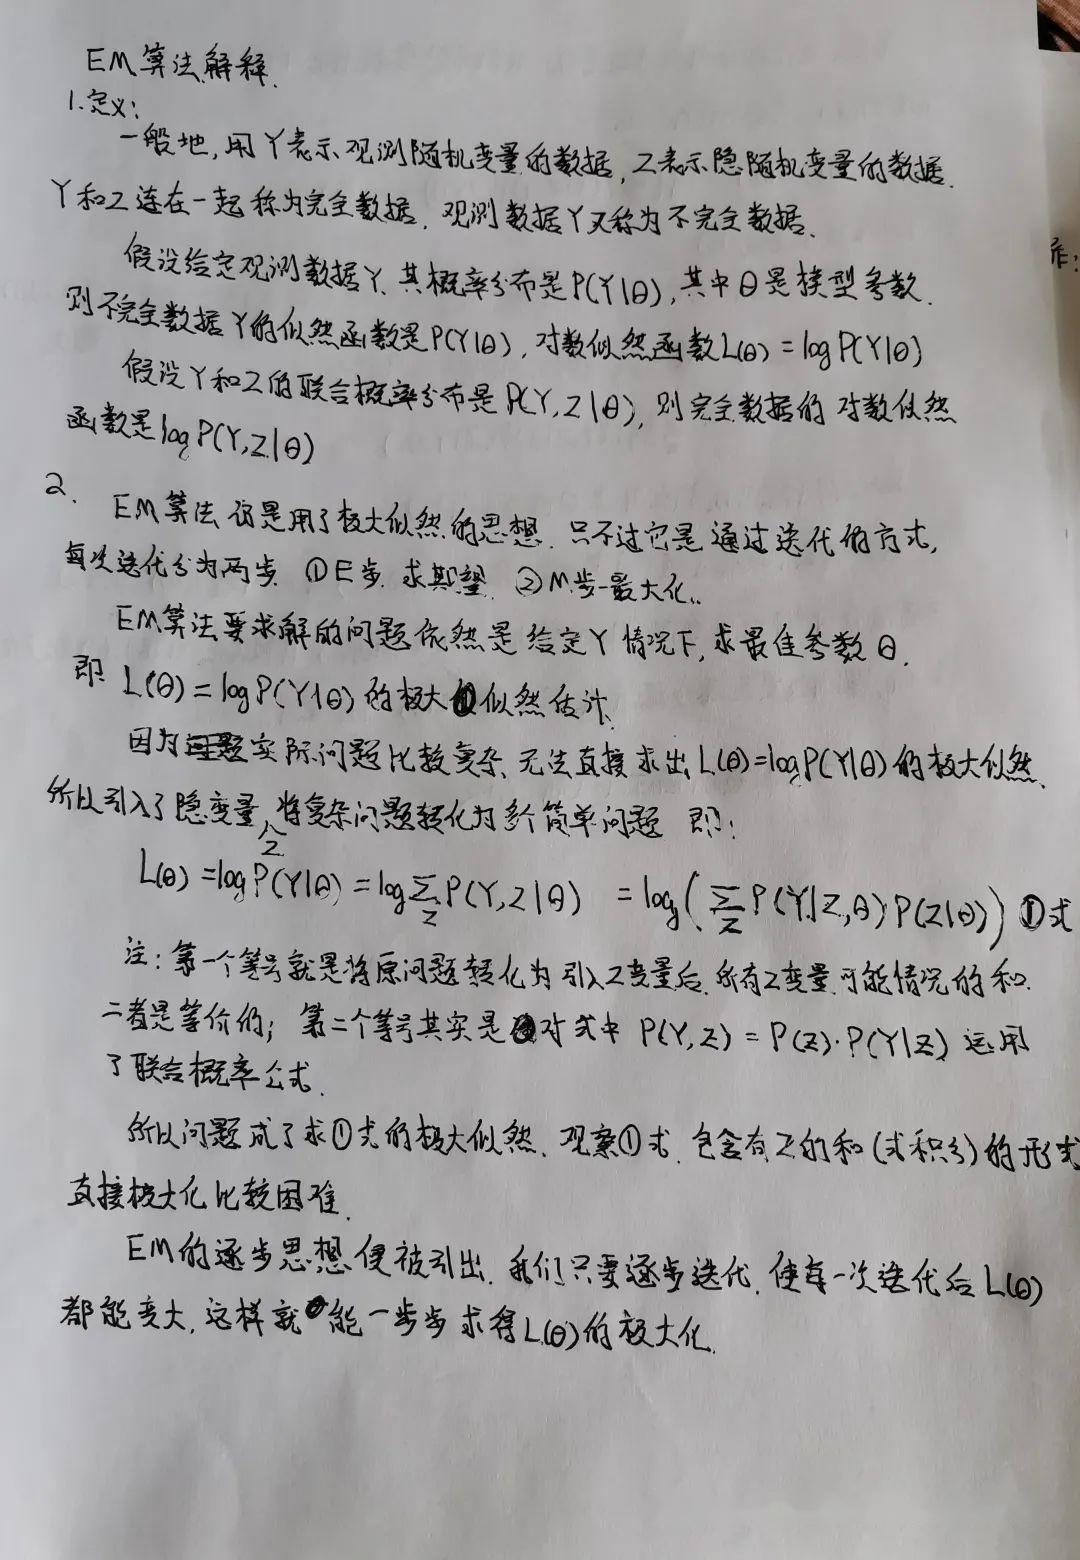 EM算法解释.
1.定义:
一般地,用Y表示观测随机变量的数据,Z表示隐随机变量的数据.
Y和Z连在一起称为完全数据.观测数据Y又称为不完全数据.
假设给定观测数据Y.其概率分布是P(Y|θ),其中θ是模型参数.
则不完全数据Y的似然函数是P(Y|θ),对数似然函数L(θ)=logP(Y|θ)
假设Y和Z的联合概率分布是P(Y,Z|θ),则完全数据的对数似然
函数是logP(Y,Z|θ)
2.
EM算法仍是用了极大似然的思想.只不过它是通过迭代的方式,
每次迭代分为两步.①E步.求期望.②M步-最大化..
EM算法要求解的问题依然是给定Y情况下,求最佳参数θ.
即L(θ)=logP(Y|θ)的极大似然估计.
因为实际问题比较复杂.无法直接求出L(θ)=logP(Y|θ)的极大似然.
所以引入了隐变量Z,将复杂问题转化为多个简单问题 即:
L(θ)=logP(Y|θ)=log∑_Z P(Y,Z|θ) =log(∑_Z P(Y|Z,θ)P(Z|θ)) ①式
注:第一个等号就是将原问题转化为引入Z变量后.所有Z变量可能情况的和.
二者是等价的;第二个等号其实是对式中P(Y,Z)=P(Z)·P(Y|Z)运用
了联合概率公式.
所以问题成了求①式的极大似然.观察①式.包含有Z的和(或积分)的形式
直接极大化比较困难.
EM的逐步思想便被引出.我们只要逐步迭代.使每一次迭代后L(θ)
都能变大.这样就能一步步求得L(θ)的极大化.